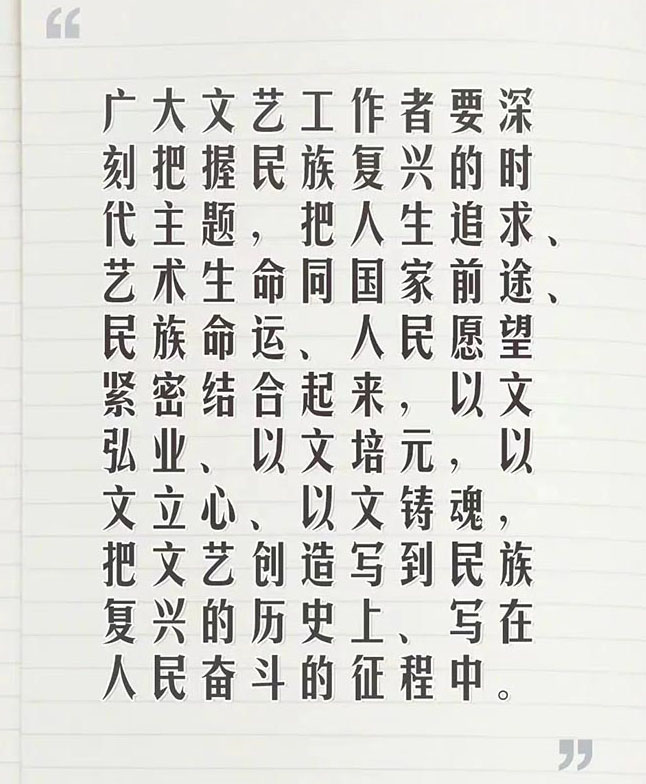 “
广大文艺工作者要深
刻把握民族复兴的时
代主题，把人生追求、
艺术生命同国家前途、
民族命运、人民愿望
紧密结合起来，以文
弘业、以文培元，以
文立心、以文铸魂，
把文艺创造写到民族
复兴的历史上、写在
人民奋斗的征程中。
”